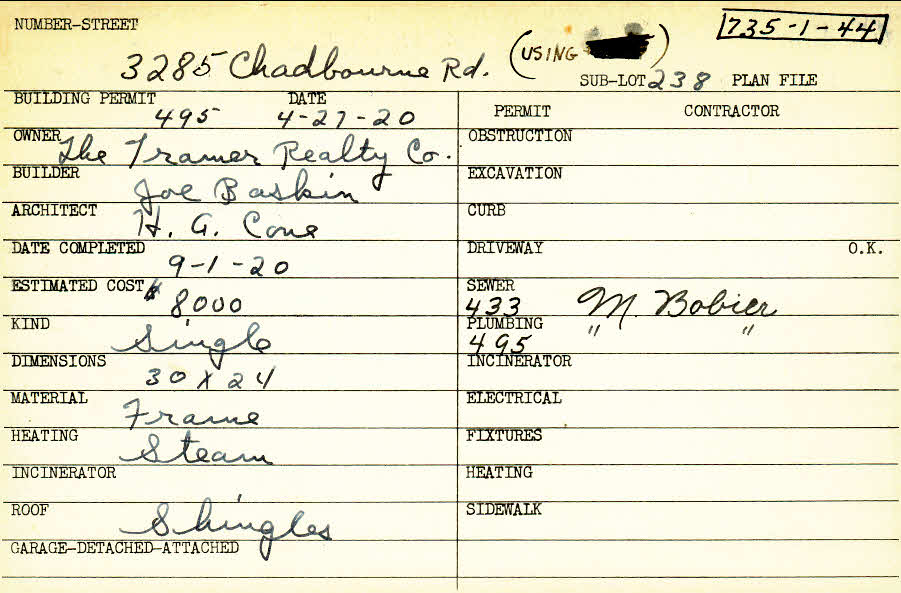 NUMBER-STREET
735-1-44
3285 Chadbourne Rd. (USING
SUB-LOT 238 PLAN FILE
BUILDING PERMIT DATE
495 4-27-20
PERMIT CONTRACTOR
OWNER The Tramer Realty Co.
OBSTRUCTION
BUILDER Joe Baskin
EXCAVATION
ARCHITECT H. G. Cone
CURB
DATE COMPLETED 9-1-20
DRIVEWAY O.K.
ESTIMATED COST $8000
SEWER
433 M. Bobier
KIND Single
PLUMBING " "
495
DIMENSIONS 30 X 24
INCINERATOR
MATERIAL Frame
ELECTRICAL
HEATING Steam
FIXTURES
INCINERATOR
HEATING
ROOF Shingles
SIDEWALK
GARAGE-DETACHED-ATTACHED